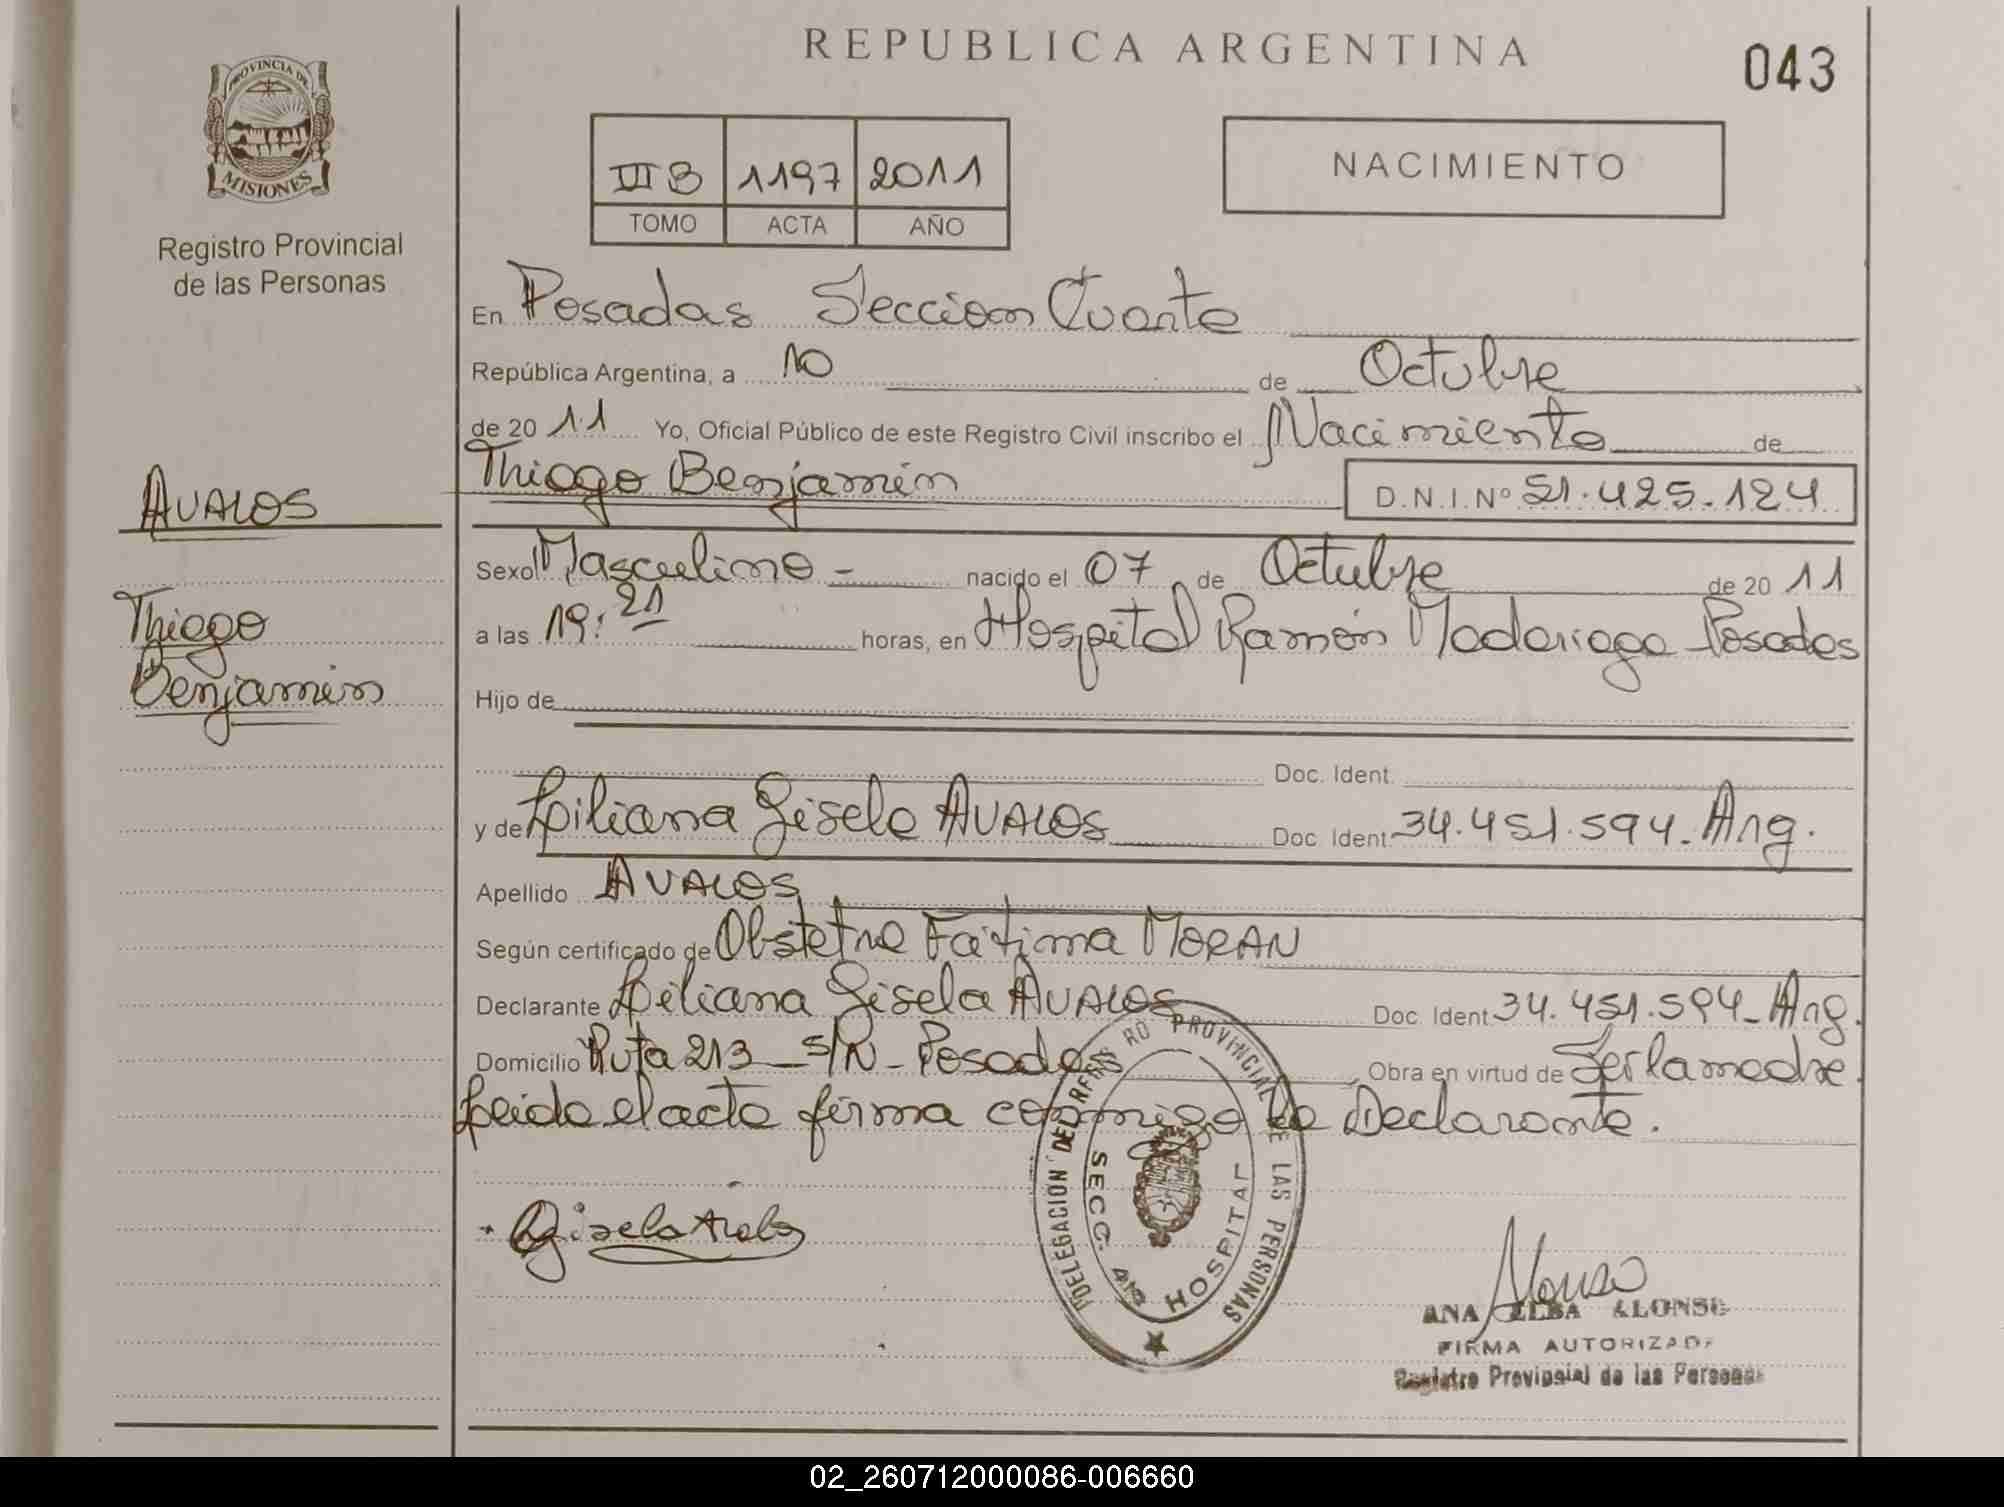 REPUBLICA ARGENTINA
043
PROVINCIA DE
MISIONES
Registro Provincial
de las Personas
III B 1197 2011
TOMO ACTA AÑO
NACIMIENTO
En Posadas Seccion Cuarta
República Argentina, a 10 de Octubre
de 20 11 Yo, Oficial Público de este Registro Civil inscribo el Nacimiento de
Thiago Benjamin D.N.I. Nº 51.425.124
AVALOS
Thiago
Benjamin
Sexo Masculino - nacido el 07 de Octubre de 20 11
a las 19:21 horas, en Hospital Ramón Madariaga Posadas
Hijo de
Doc. Ident.
y de Liliana Gisela AVALOS Doc. Ident. 34.451.594_Arg.
Apellido AVALOS
Según certificado de Obstetra Fátima MORAN
Declarante Liliana Gisela AVALOS Doc. Ident. 34.451.594_Arg.
Domicilio Ruta 213 - S/N - Posadas Obra en virtud de Ser la madre.
Leida el acta firma conmigo la Declarante.
DELEGACION DEL REGISTRO PROVINCIAL DE LAS PERSONAS
SECC. 4ta HOSPITAL
ANA ELBA ALONSO
FIRMA AUTORIZADA
Registro Provincial de las Personas
02_260712000086-006660